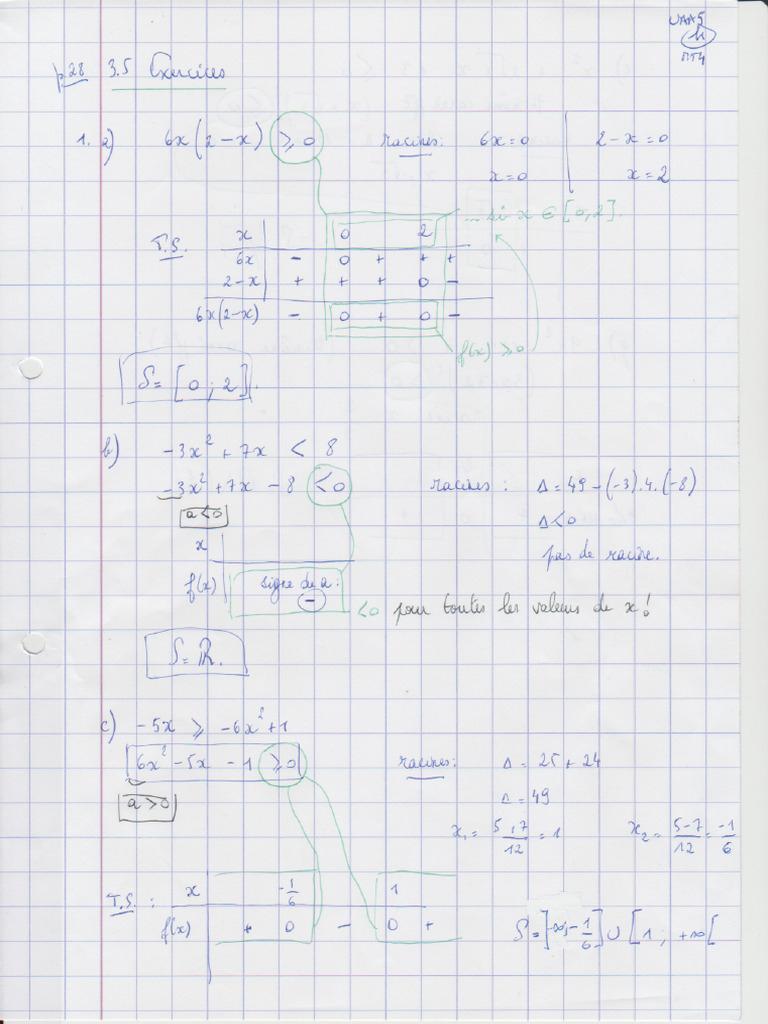 UAA5
MT4
p.28 3.5 Exercices
1. a) 6x(2-x) ≥ 0 racines: 6x=0 | 2-x=0
x=0 | x=2
... si x ∈ [0,2].
T.S. x | 0 2
6x | - 0 + + +
2-x | + + + 0 -
6x(2-x) | - 0 + 0 -
f(x) ≥ 0
S = [0 ; 2].
b) -3x² + 7x < 8
-3x² + 7x - 8 < 0 racines : Δ = 49 - (-3).4.(-8)
a<0 Δ<0
x | pas de racine.
f(x) | signe de a :
- <0 pour toutes les valeurs de x !
S = ℝ.
c) -5x ≥ -6x² + 1
6x² - 5x - 1 ≥ 0 racines: Δ = 25 + 24
a>0 Δ = 49
x₁ = 5+7/12 = 1 x₂ = 5-7/12 = -1/6
T.S. : x | -1/6 1
f(x) | + 0 - 0 + S = ]-∞;-1/6] ∪ [1 ; +∞[